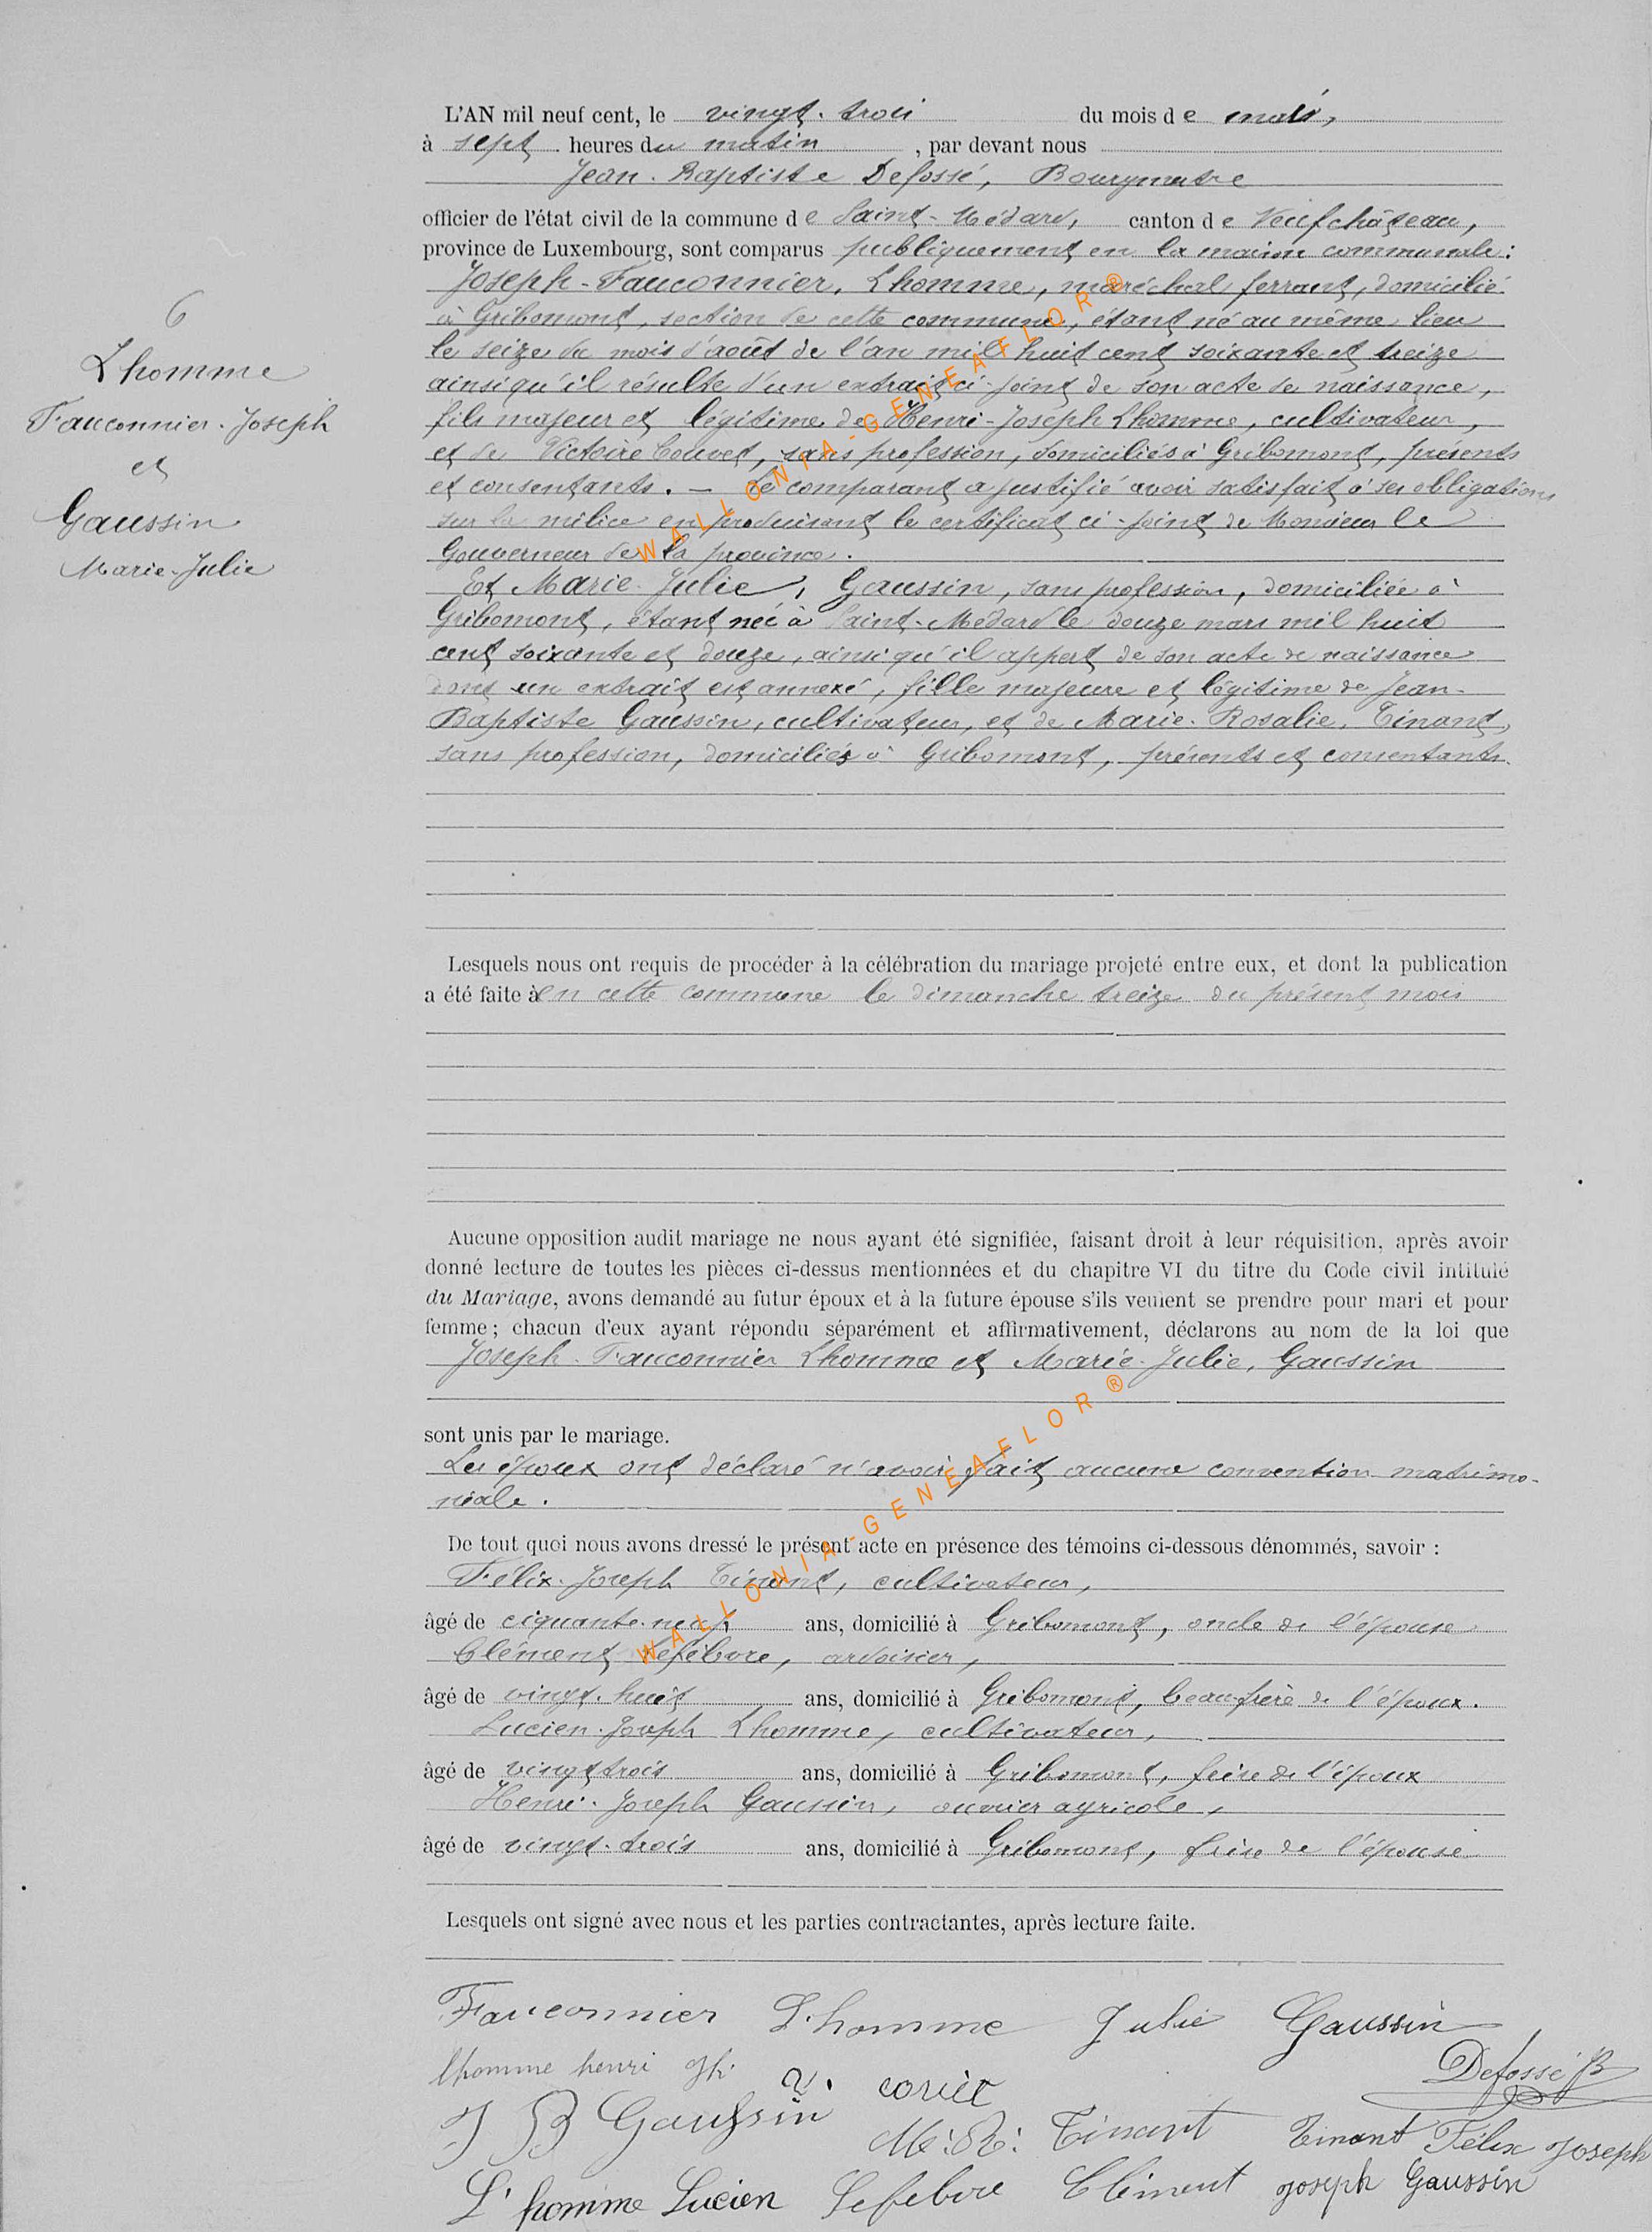 L'AN mil neuf cent, le vingt-trois du mois de mai,
à sept heures du matin, par devant nous
Jean-Baptiste Defossé, Bourgmestre
officier de l'état civil de la commune de Saint-Médard, canton de Neufchâteau,
province de Luxembourg, sont comparus publiquement en la maison communale :
Joseph-Fauconnier, Lhomme, maréchal ferrant, domicilié
à Gribomont, section de cette commune, étant né au même lieu
le seize du mois d'août de l'an mil huit cent soixante et treize
ainsi qu'il résulte d'un extrait ci-joint de son acte de naissance,
fils majeur et légitime de Henri-Joseph Lhomme, cultivateur,
et de Victoire Couvet, sans profession, domiciliés à Gribomont, présents
et consentants. — Le comparant a justifié avoir satisfait à ses obligations
sur la milice en produisant le certificat ci-joint de Monsieur le
Gouverneur de la province.
Et Marie-Julie, Gaussin, sans profession, domiciliée à
Gribomont, étant née à Saint-Médard le douze mars mil huit
cent soixante et douze, ainsi qu'il appert de son acte de naissance
dont un extrait est annexé, fille majeure et légitime de Jean-
Baptiste Gaussin, cultivateur, et de Marie-Rosalie, Tinant,
sans profession, domiciliés à Gribomont, présents et consentants.
6
Lhomme
Fauconnier-Joseph
et
Gaussin
Marie-Julie
Lesquels nous ont requis de procéder à la célébration du mariage projeté entre eux, et dont la publication
a été faite à en cette commune le dimanche treize du présent mois
Aucune opposition audit mariage ne nous ayant été signifiée, faisant droit à leur réquisition, après avoir
donné lecture de toutes les pièces ci-dessus mentionnées et du chapitre VI du titre du Code civil intitulé
du Mariage, avons demandé au futur époux et à la future épouse s'ils veulent se prendre pour mari et pour
femme ; chacun d'eux ayant répondu séparément et affirmativement, déclarons au nom de la loi que
Joseph-Fauconnier Lhomme et Marie-Julie, Gaussin
sont unis par le mariage.
Les époux ont déclaré n'avoir fait aucune convention matrimo-
niale.
De tout quoi nous avons dressé le présent acte en présence des témoins ci-dessous dénommés, savoir :
Félix-Joseph Tinant, cultivateur,
âgé de ciquante-neuf ans, domicilié à Gribomont, oncle de l'épouse
Clément Lefebvre, ardoisier,
âgé de vingt-huit ans, domicilié à Gribomont, beau-frère de l'époux.
Lucien-Joseph Lhomme, cultivateur,
âgé de vingt trois ans, domicilié à Gribomont, frère de l'époux
Henri-Joseph Gaussin, ouvrier agricole,
âgé de vingt-trois ans, domicilié à Gribomont, frère de l'épouse
Lesquels ont signé avec nous et les parties contractantes, après lecture faite.
Fauconnier L'homme Julie Gaussin
lhomme henri jh. V. Defossé JB
J B Gaussin M. R. Tinant Tinant Félix Joseph
L'homme Lucien Lefebvre Clément joseph Gaussin
WALLONIA-GENEAFLOR ®
WALLONIA-GENEAFLOR ®